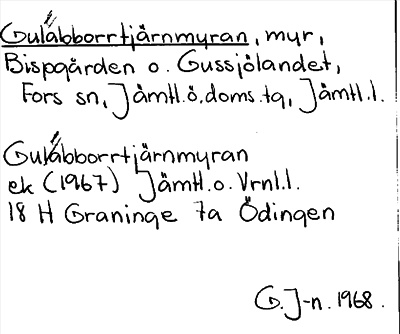 Gulåbborrtjärnmyran, myr,
Bispgården o. Gussjölandet,
Fors sn, Jämtl.ö.doms.tg, Jämtl.l.
Gulåbborrtjärnmyran
ek (1967) Jämtl.o.Vrnl.l.
18 H Graninge 7a Ödingen
G.J-n. 1968.